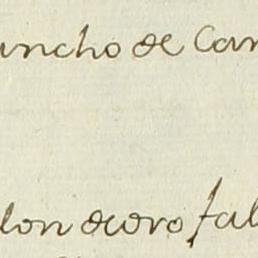 uncho de Can
lon de oro fal